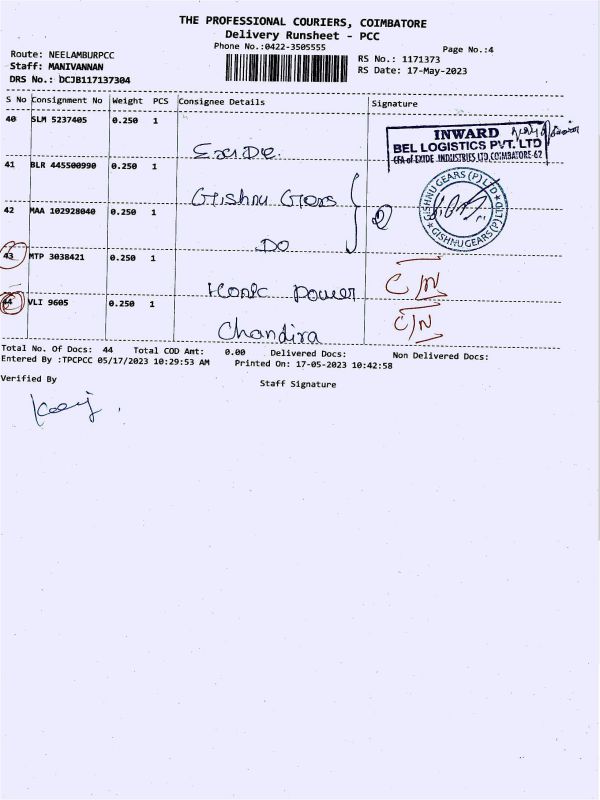 THE PROFESSIONAL COURIERS, COIMBATORE
Delivery Runsheet - PCC
Phone No.:0422-3505555
Page No.:4
Route: NEELAMBURPCC
Staff: MANIVANNAN
DRS No.: DCJB117137304
RS No.: 1171373
RS Date: 17-May-2023
S No Consignment No Weight PCS Consignee Details Signature
40 SLM 5237405 0.250 1
Exide.
INWARD
BEL LOGISTICS PVT. LTD
CFA of EXIDE INDUSTRIES LTD, COIMBATORE-62
41 BLR 445500990 0.250 1
Gishnu Gears
GISHNU GEARS (P) LTD
GISHNU GEARS (P) LTD
42 MAA 102928040 0.250 1
DO
2
43 MTP 3038421 0.250 1
Power
C/N
44 VLI 9605 0.250 1
Chandira
C/N
Total No. Of Docs: 44 Total COD Amt: 0.00 Delivered Docs: Non Delivered Docs:
Entered By :TPCPCC 05/17/2023 10:29:53 AM Printed On: 17-05-2023 10:42:58
Verified By
Staff Signature